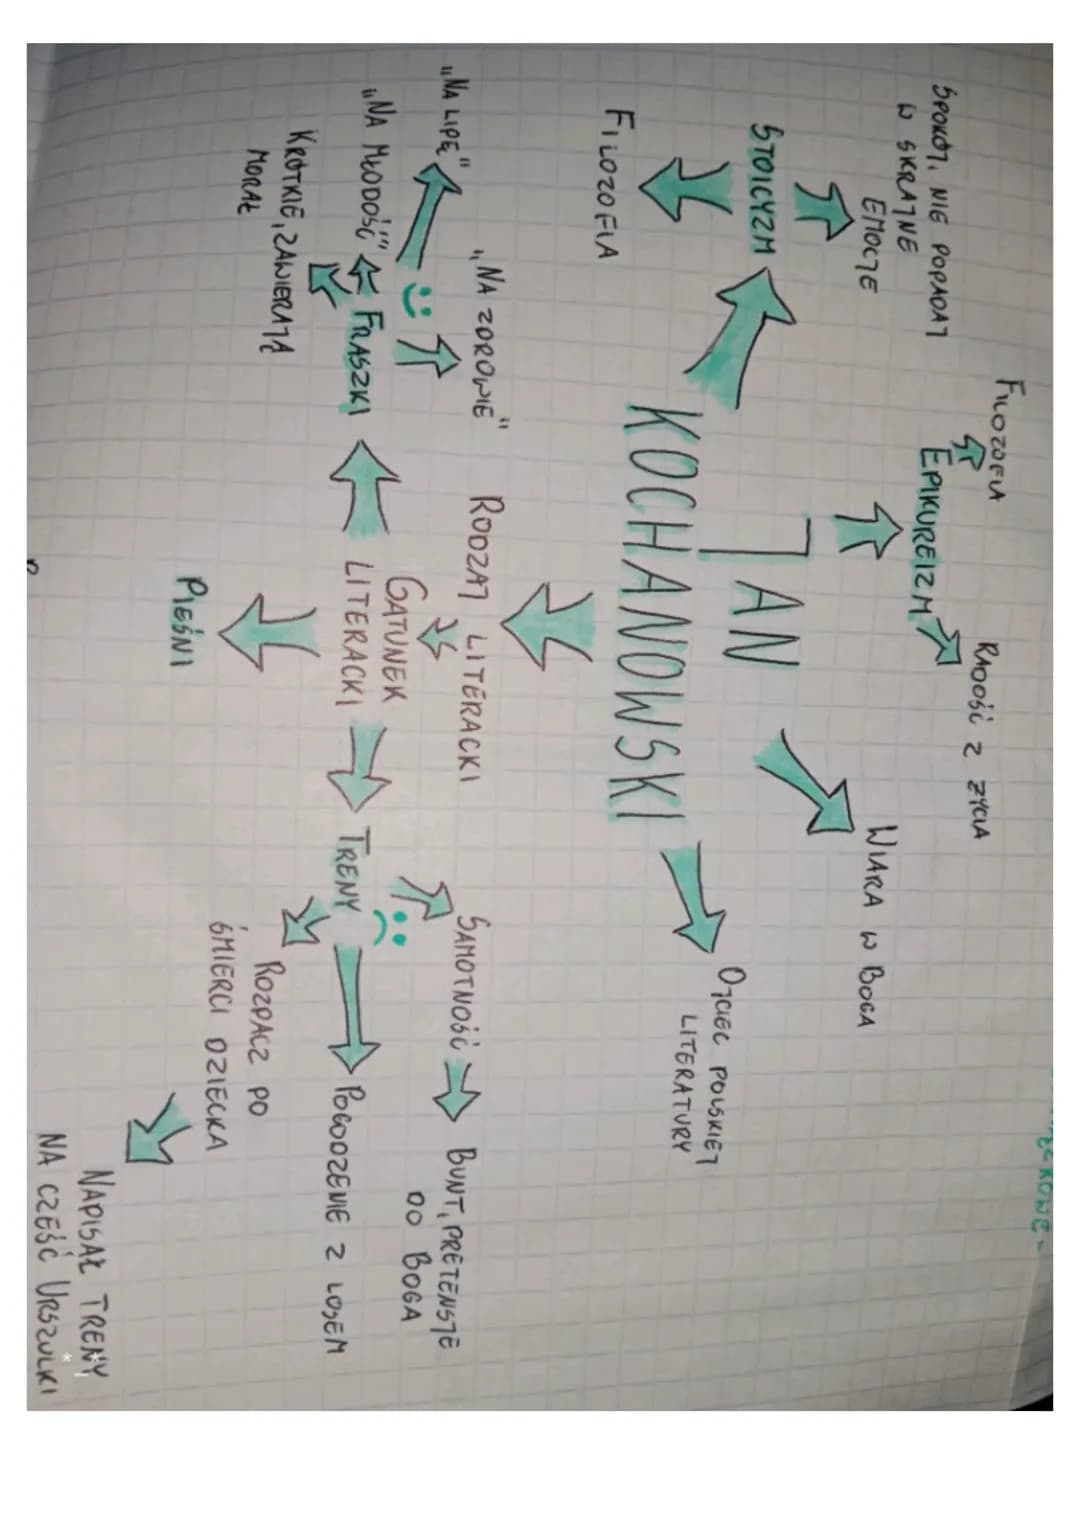 FILOZOFIA
RADOŚĆ Z ŻYCIA
EPIKUREIZM
SPOKÓJ, NIE POPADAJ
W SKRAJNE
EMOCJE
WIARA W BOGA
STOICYZM
JAN
KOCHANOWSKI
OJCIEC POLSKIEJ
LITERATURY
FILOZOFIA
RODZAJ LITERACKI
„NA ZDROWIE"
„NA LIPĘ"
„NA MŁODOŚĆ"
FRASZKI
KRÓTKIE, ZAWIERAJĄ
MORAŁ
GATUNEK
LITERACKI
PIEŚNI
TRENY
SAMOTNOŚĆ
BUNT, PRETENSJE
DO BOGA
POGODZENIE Z LOSEM
ROZPACZ PO
ŚMIERCI DZIECKA
NAPISAŁ TRENY,
NA CZEŚĆ URSZULKI